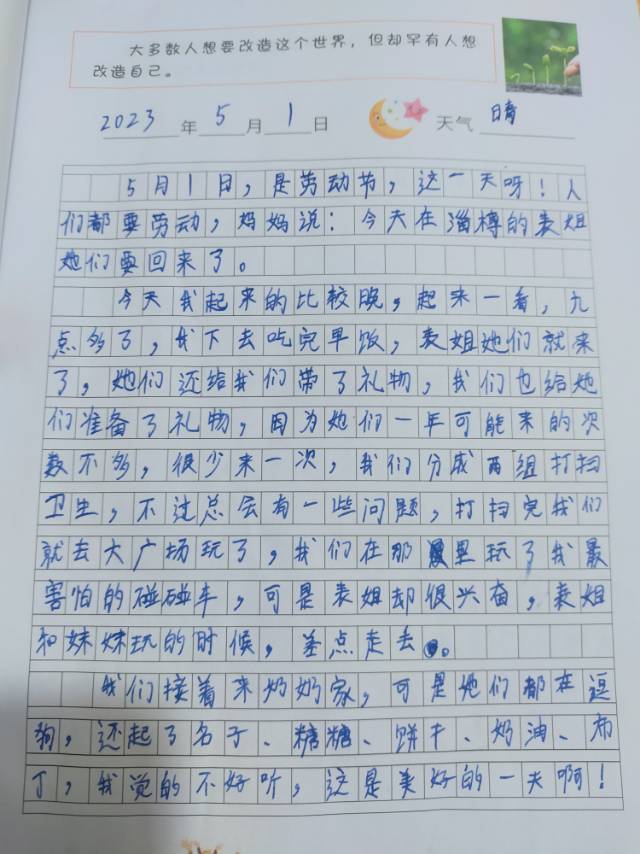 大多数人想要改造这个世界，但却罕有人想
改造自己。
2023 年 5 月 1 日 天气 晴
5月1日，是劳动节，这一天呀！人
们都要劳动，妈妈说：今天在淄樽的表姐
她们要回来了。
今天我起来的比较晚，起来一看，九
点多了，我下去吃完早饭，表姐她们就来
了，她们还给我们带了礼物，我们也给她
们准备了礼物，因为她们一年可能来的次
数不多，很少来一次，我们分成两组打扫
卫生，不过总会有一些问题，打扫完我们
就去大广场玩了，我们在那里玩了我最
害怕的碰碰车，可是表姐却很兴奋，表姐
和妹妹玩的时候，差点走去。
我们接着来奶奶家，可是她们都在逗
狗，还起了名子、糖糖、饼干、奶油、布
丁，我觉的不好听，这是美好的一天啊！